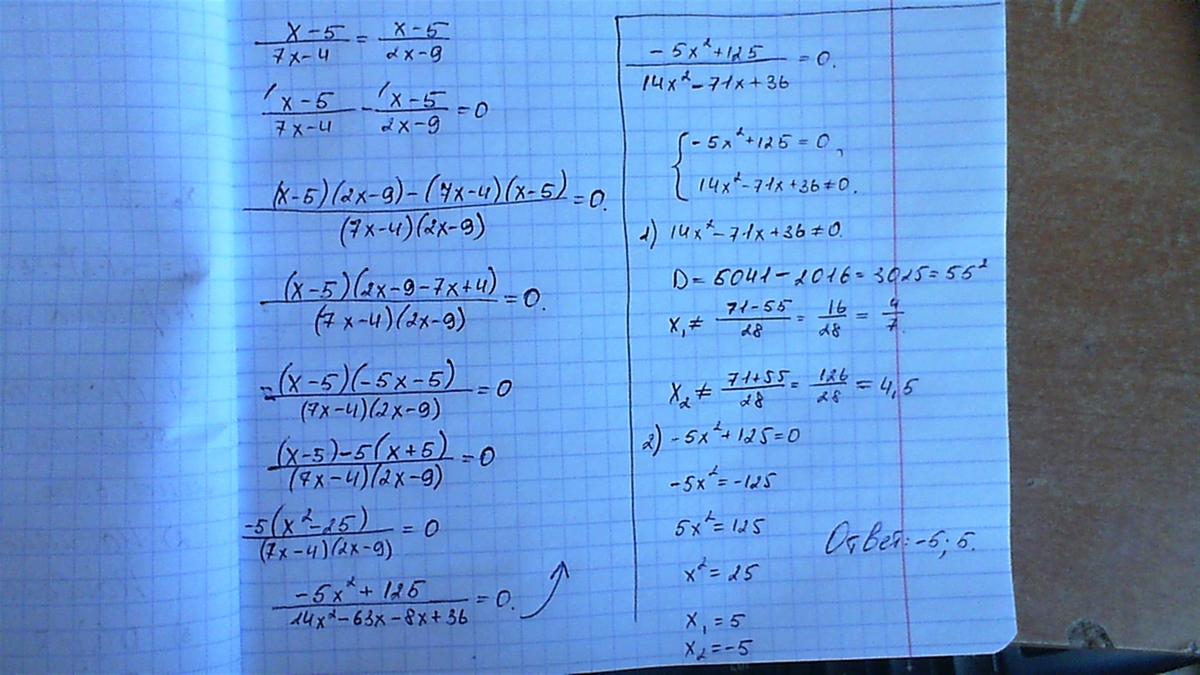 (x-5)/(7x-4) = (x-5)/(2x-9)
(x-5)/(7x-4) - (x-5)/(2x-9) = 0
((x-5)(2x-9)-(7x-4)(x-5))/((7x-4)(2x-9)) = 0.
((x-5)(2x-9-7x+4))/((7x-4)(2x-9)) = 0.
= ((x-5)(-5x-5))/((7x-4)(2x-9)) = 0
((x-5)-5(x+5))/((7x-4)(2x-9)) = 0
(-5(x²-25))/((7x-4)(2x-9)) = 0
(-5x²+125)/(14x²-63x-8x+36) = 0.
(-5x²+125)/(14x²-71x+36) = 0.
{ -5x²+125 = 0,
14x²-71x+36 ≠ 0.
1) 14x²-71x+36 ≠ 0.
D = 5041-2016 = 3025 = 55²
x₁ ≠ (71-55)/28 = 16/28 = 4/7
x₂ ≠ (71+55)/28 = 126/28 = 4,5
2) -5x²+125=0
-5x²=-125
5x²=125
x²=25
x₁=5
x₂=-5
Ответ: -5; 5.